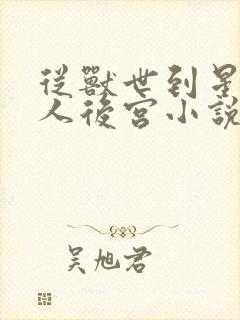 從獸世到星
人後宮小說
吳旭君